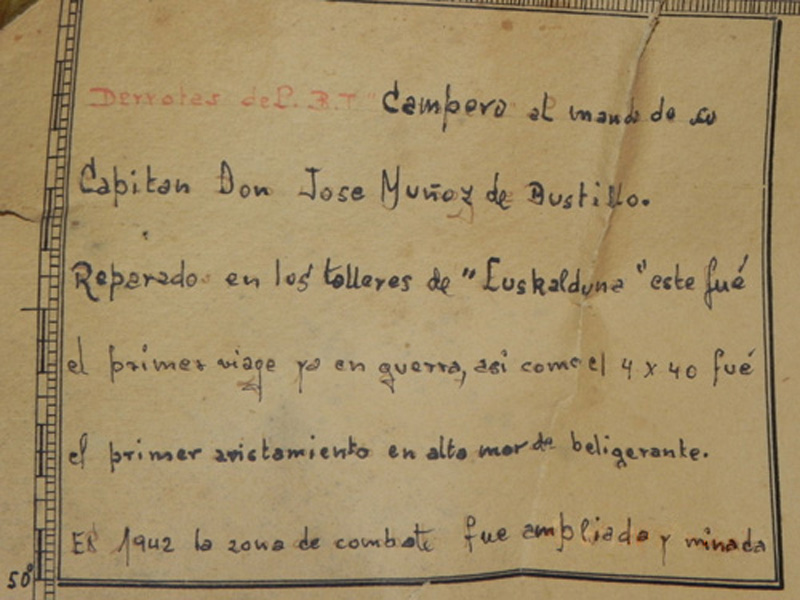 Derrotas del P. B.T. "Campero" al mando de su
Capitan Don Jose Muñoz de Bustillo.
Reparado en los talleres de "Euskalduna" este fué
el primer viage ya en guerra, asi como el 4 x 40 fué
el primer avistamiento en alta mar de beligerante.
EN 1942 la zona de combate fue ampliada y minada
50°